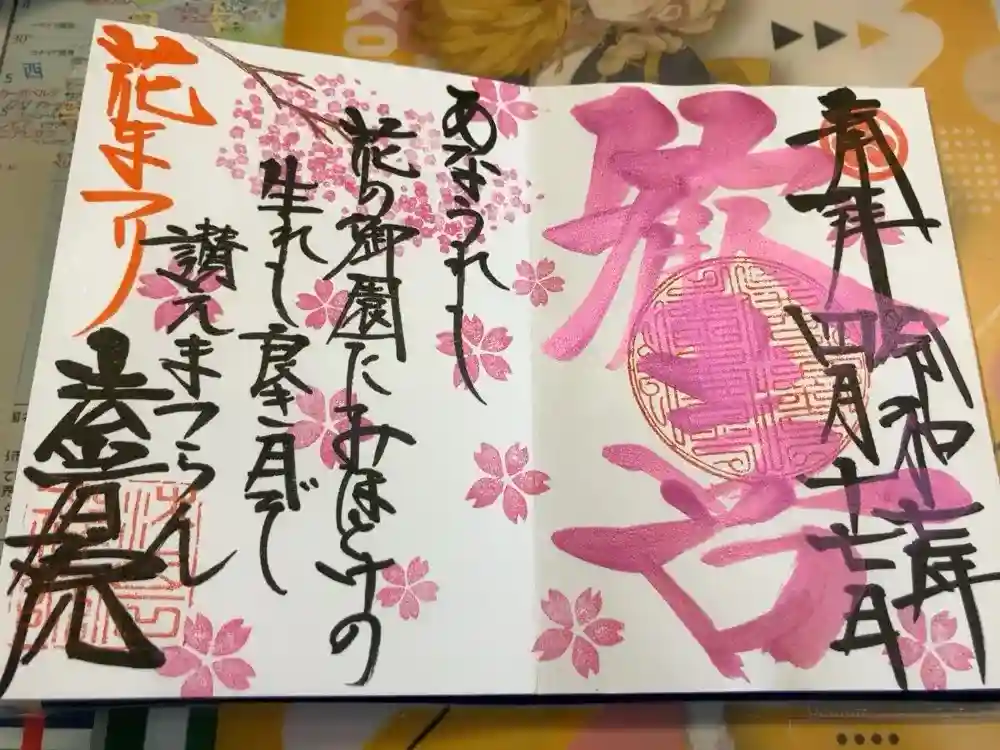 奉拝
令和七年
四月十七日
歓喜
あなうれし
花の御園にみほとけの
生れし良き日ぞ
讃えまつらん
花まつり